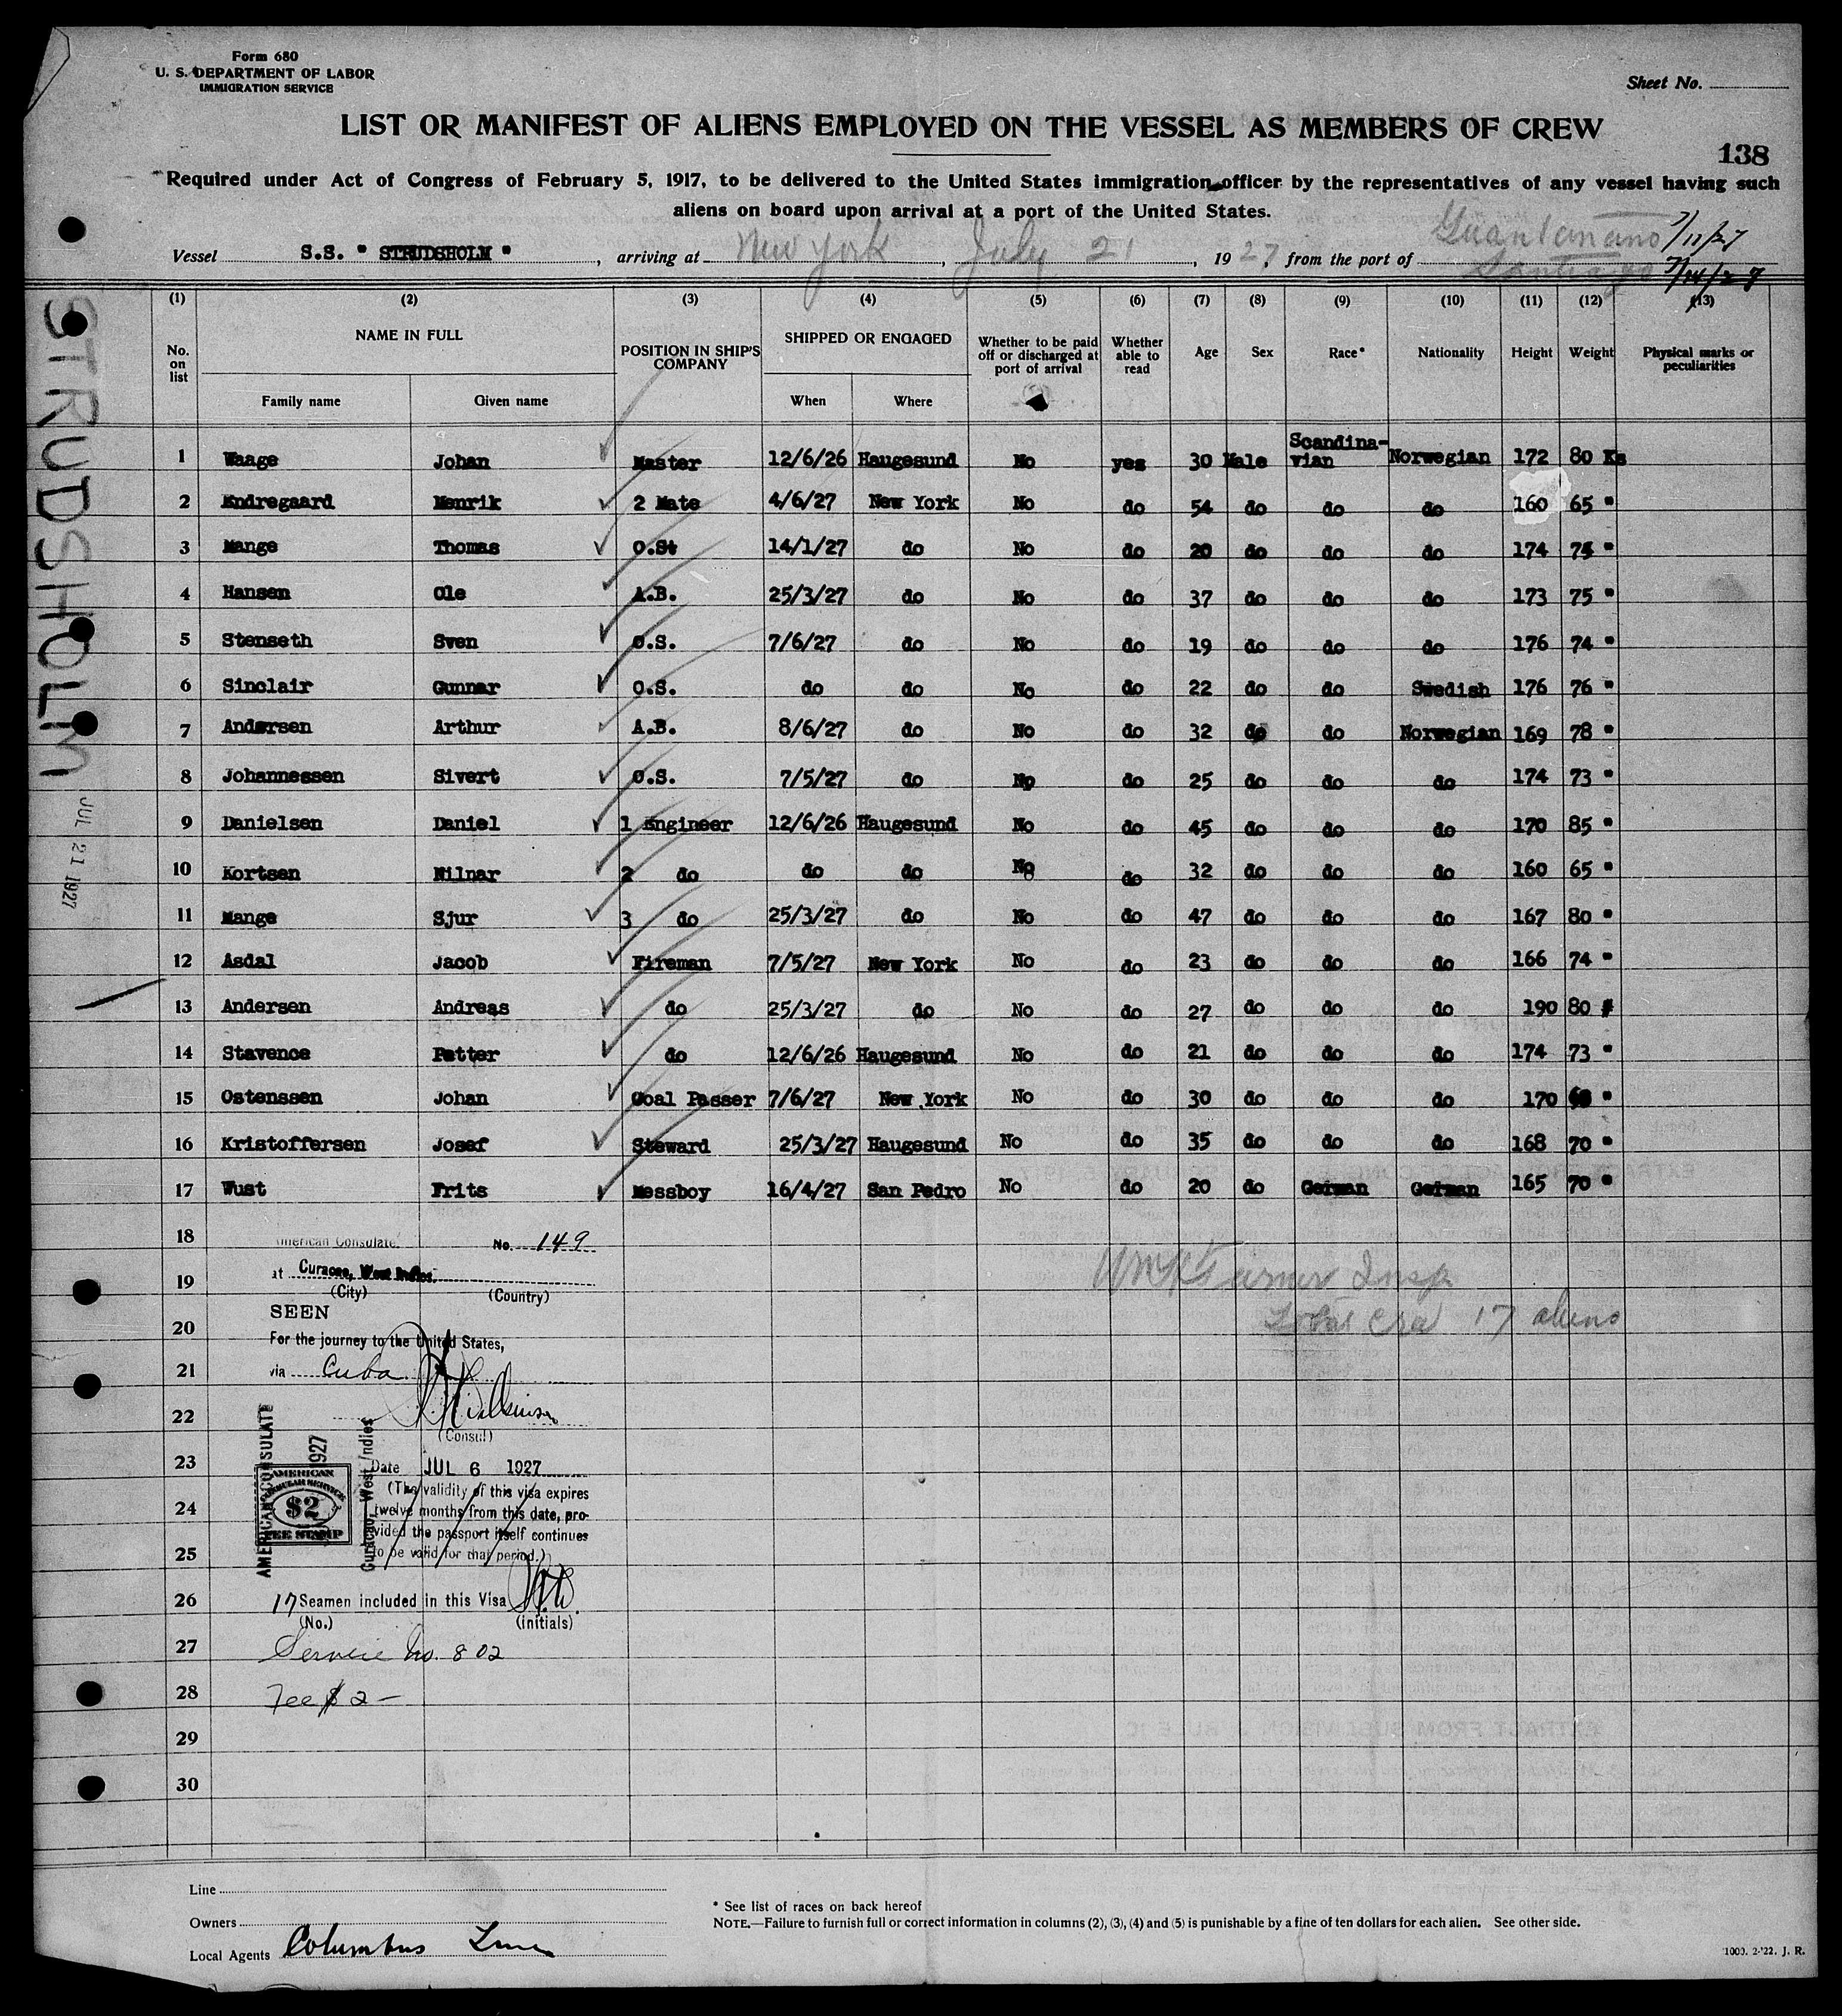 Form 680
U. S. DEPARTMENT OF LABOR
IMMIGRATION SERVICE
Sheet No.
LIST OR MANIFEST OF ALIENS EMPLOYED ON THE VESSEL AS MEMBERS OF CREW
138
Required under Act of Congress of February 5, 1917, to be delivered to the United States immigration officer by the representatives of any vessel having such
aliens on board upon arrival at a port of the United States.
Guantanano 7/11/27
Vessel S.S. " STRUDSHOLM " , arriving at New York , July 21 , 1927, from the port of Santiago 7/14/27
(1) (2) (3) (4) (5) (6) (7) (8) (9) (10) (11) (12) (13)
No. on list NAME IN FULL POSITION IN SHIP'S COMPANY SHIPPED OR ENGAGED Whether to be paid off or discharged at port of arrival Whether able to read Age Sex Race* Nationality Height Weight Physical marks or peculiarities
Family name Given name When Where
1 Waage Johan Master 12/6/26 Haugesund No yes 30 Male Scandina-vian Norwegian 172 80 Ks
2 Endregaard Henrik 2 Mate 4/6/27 New York No do 54 do do do 160 65 "
3 Mange Thomas O.St 14/1/27 do No do 20 do do do 174 74 "
4 Hansen Ole A.B. 25/3/27 do No do 37 do do do 173 75 "
5 Stenseth Sven O.S. 7/6/27 do No do 19 do do do 176 74 "
6 Sinclair Gunnar O.S. do do No do 22 do do Swedish 176 76 "
7 Andersen Arthur A.B. 8/6/27 do No do 32 do do Norwegian 169 78 "
8 Johannessen Sivert O.S. 7/5/27 do No do 25 do do do 174 73 "
9 Danielsen Daniel 1 Engineer 12/6/26 Haugesund No do 45 do do do 170 85 "
10 Kortsen Hilnar 2 do do do No do 32 do do do 160 65 "
11 Mange Sjur 3 do 25/3/27 do No do 47 do do do 167 80 "
12 Asdal Jacob Fireman 7/5/27 New York No do 23 do do do 166 74 "
13 Andersen Andreas do 25/3/27 do No do 27 do do do 190 80 "
14 Stavence Petter do 12/6/26 Haugesund No do 21 do do do 174 73 "
15 Ostenssen Johan Coal Passer 7/6/27 New York No do 30 do do do 170 "
16 Kristoffersen Josef Steward 25/3/27 Haugesund No do 35 do do do 168 70 "
17 Wust Frits Messboy 16/4/27 San Pedro No do 20 do German German 165 70 "
18
19
20
21
22
23
24
25
26
27
28
29
30
American Consulate No. 149
at Curacao, West Indies.
(City) (Country)
SEEN
For the journey to the United States,
via Cuba
(Consul)
Date JUL 6 1927
(The validity of this visa expires
twelve months from this date, pro-
vided the passport itself continues
to be valid for that period.)
17 Seamen included in this Visa
(No.) (initials)
Service No. 802
Fee $2-
AMERICAN CONSULATE
1927
Curacao, West Indies
AMERICAN
CONSULAR SERVICE
$2
FEE STAMP
Turner Insp
Total crew 17 aliens
STRUDSHOLM
JUL 21 1927
Line
Owners
Local Agents Columbus Line
* See list of races on back hereof
NOTE.—Failure to furnish full or correct information in columns (2), (3), (4) and (5) is punishable by a fine of ten dollars for each alien. See other side.
1000. 2-'22. J. R.